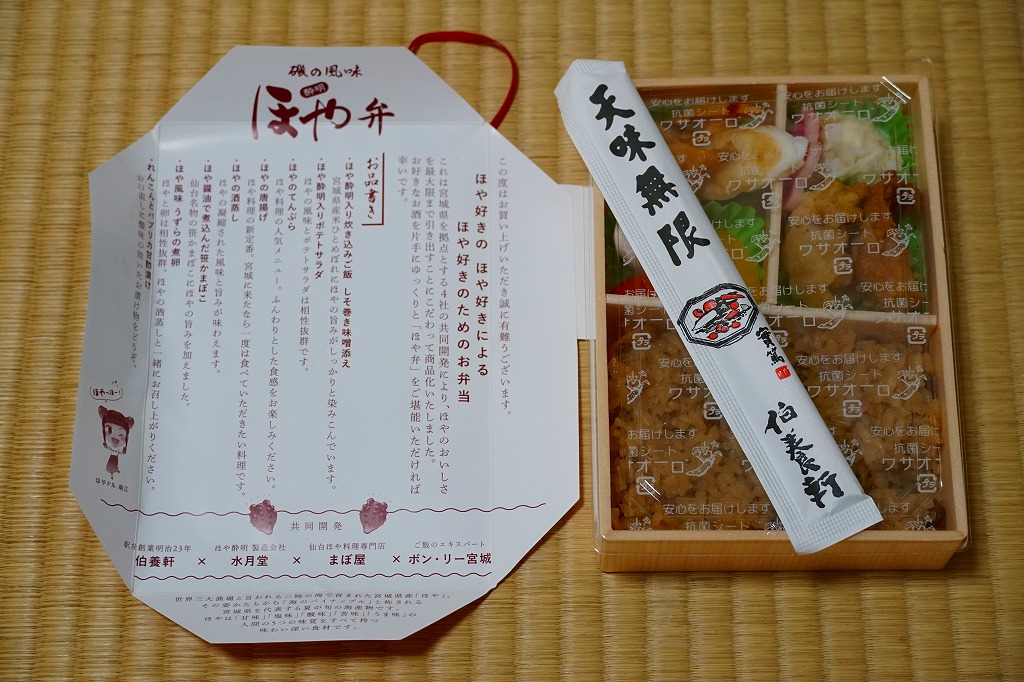 磯の風味
酔明
ほや弁
この度はお買い上げいただき誠に有難うございます。
ほや好きの ほや好きによる
ほや好きのためのお弁当
これは宮城県を拠点とする4社の共同開発により、ほやのおいしさ
を最大限まで引き出すことにこだわって商品化いたしました。
お好きなお酒を片手にゆっくりと「ほや弁」をご堪能いただければ
幸いです。
お品書き
・ほや酔明入り炊き込みご飯 しそ巻き味噌添え
宮城県産米ひとめぼれにほやの旨みがしっかりと染みこんでいます。
・ほや酔明入りポテトサラダ
ほやの風味とポテトサラダは相性抜群です。
・ほやのてんぷら
ほや料理の人気メニュー。ふんわりとした食感をお楽しみください。
・ほやの唐揚げ
ほや料理の新定番。宮城に来たなら一度は食べていただきたい料理です。
・ほやの酒蒸し
ほやの凝縮された風味と旨みが味わえます。
・ほや醤油で煮込んだ笹かまぼこ
仙台名物の笹かまぼこにほやの旨みを加えました。
・ほや風味 うずらの煮卵
ほやと卵は相性抜群。ほやの酒蒸しと一緒にお召し上がりください。
・れんこんとパプリカ甘酢漬け
ほやっほー!
ほやドル 萌江
共同開発
駅弁創業明治23年
伯養軒
×
ほや酔明 製造会社
水月堂
×
仙台ほや料理専門店
まぼ屋
×
ご飯のエキスパート
ボン・リー宮城
世界三大漁場と言われる三陸の海で育まれた宮城県産「ほや」。
その姿かたちから「海のパイナップル」と称される
宮城県を代表する夏が旬の海産物です。
ほやは「甘味」「塩味」「酸味」「苦味」「うま味」の
人間の5つの味覚をすべて持つ
味わい深い食材です。
天味無限
伯養軒
安心をお届けします
抗菌シート
ワサオーロ